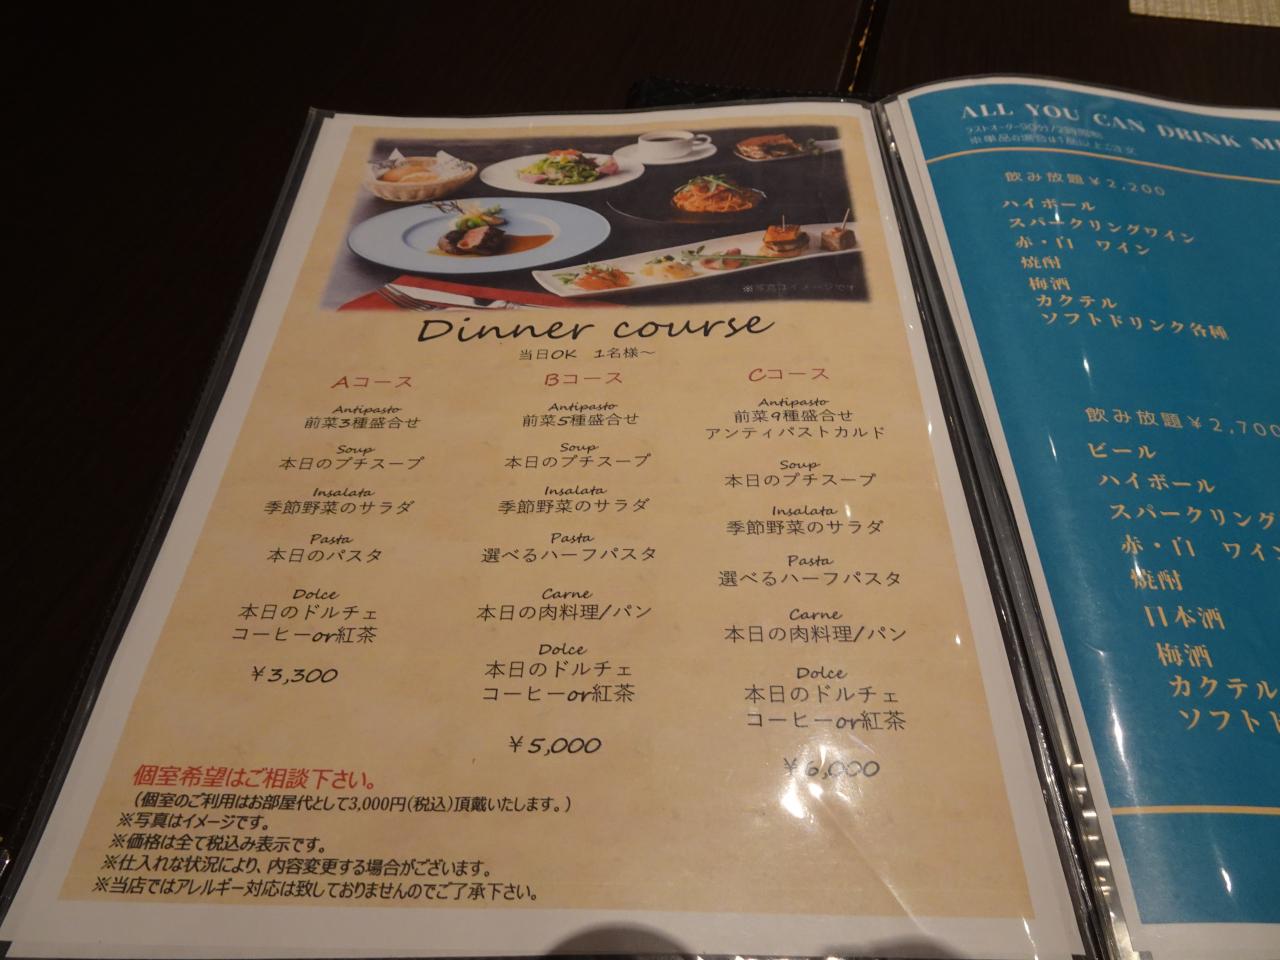 ※写真はイメージです
Dinner course
当日OK 1名様～
Aコース
Antipasto
前菜3種盛合せ
Soup
本日のプチスープ
Insalata
季節野菜のサラダ
Pasta
本日のパスタ
Dolce
本日のドルチェ
コーヒーor紅茶
￥3,300
Bコース
Antipasto
前菜5種盛合せ
Soup
本日のプチスープ
Insalata
季節野菜のサラダ
Pasta
選べるハーフパスタ
Carne
本日の肉料理/パン
Dolce
本日のドルチェ
コーヒーor紅茶
￥5,000
Cコース
Antipasto
前菜9種盛合せ
アンティパストカルド
Soup
本日のプチスープ
Insalata
季節野菜のサラダ
Pasta
選べるハーフパスタ
Carne
本日の肉料理/パン
Dolce
本日のドルチェ
コーヒーor紅茶
￥6,000
個室希望はご相談下さい。
（個室のご利用はお部屋代として3,000円（税込）頂戴いたします。）
※写真はイメージです。
※価格は全て税込み表示です。
※仕入れな状況により、内容変更する場合がございます。
※当店ではアレルギー対応は致しておりませんのでご了承下さい。
ALL YOU CAN DRINK
ラストオーダー90分/2時間制
飲み放題￥2,200
ハイボール
スパークリングワイン
赤・白 ワイン
焼酎
梅酒
カクテル
ソフトドリンク各種
飲み放題￥2,700
ビール
ハイボール
スパークリング
赤・白 ワイン
焼酎
日本酒
梅酒
カクテル
ソフト